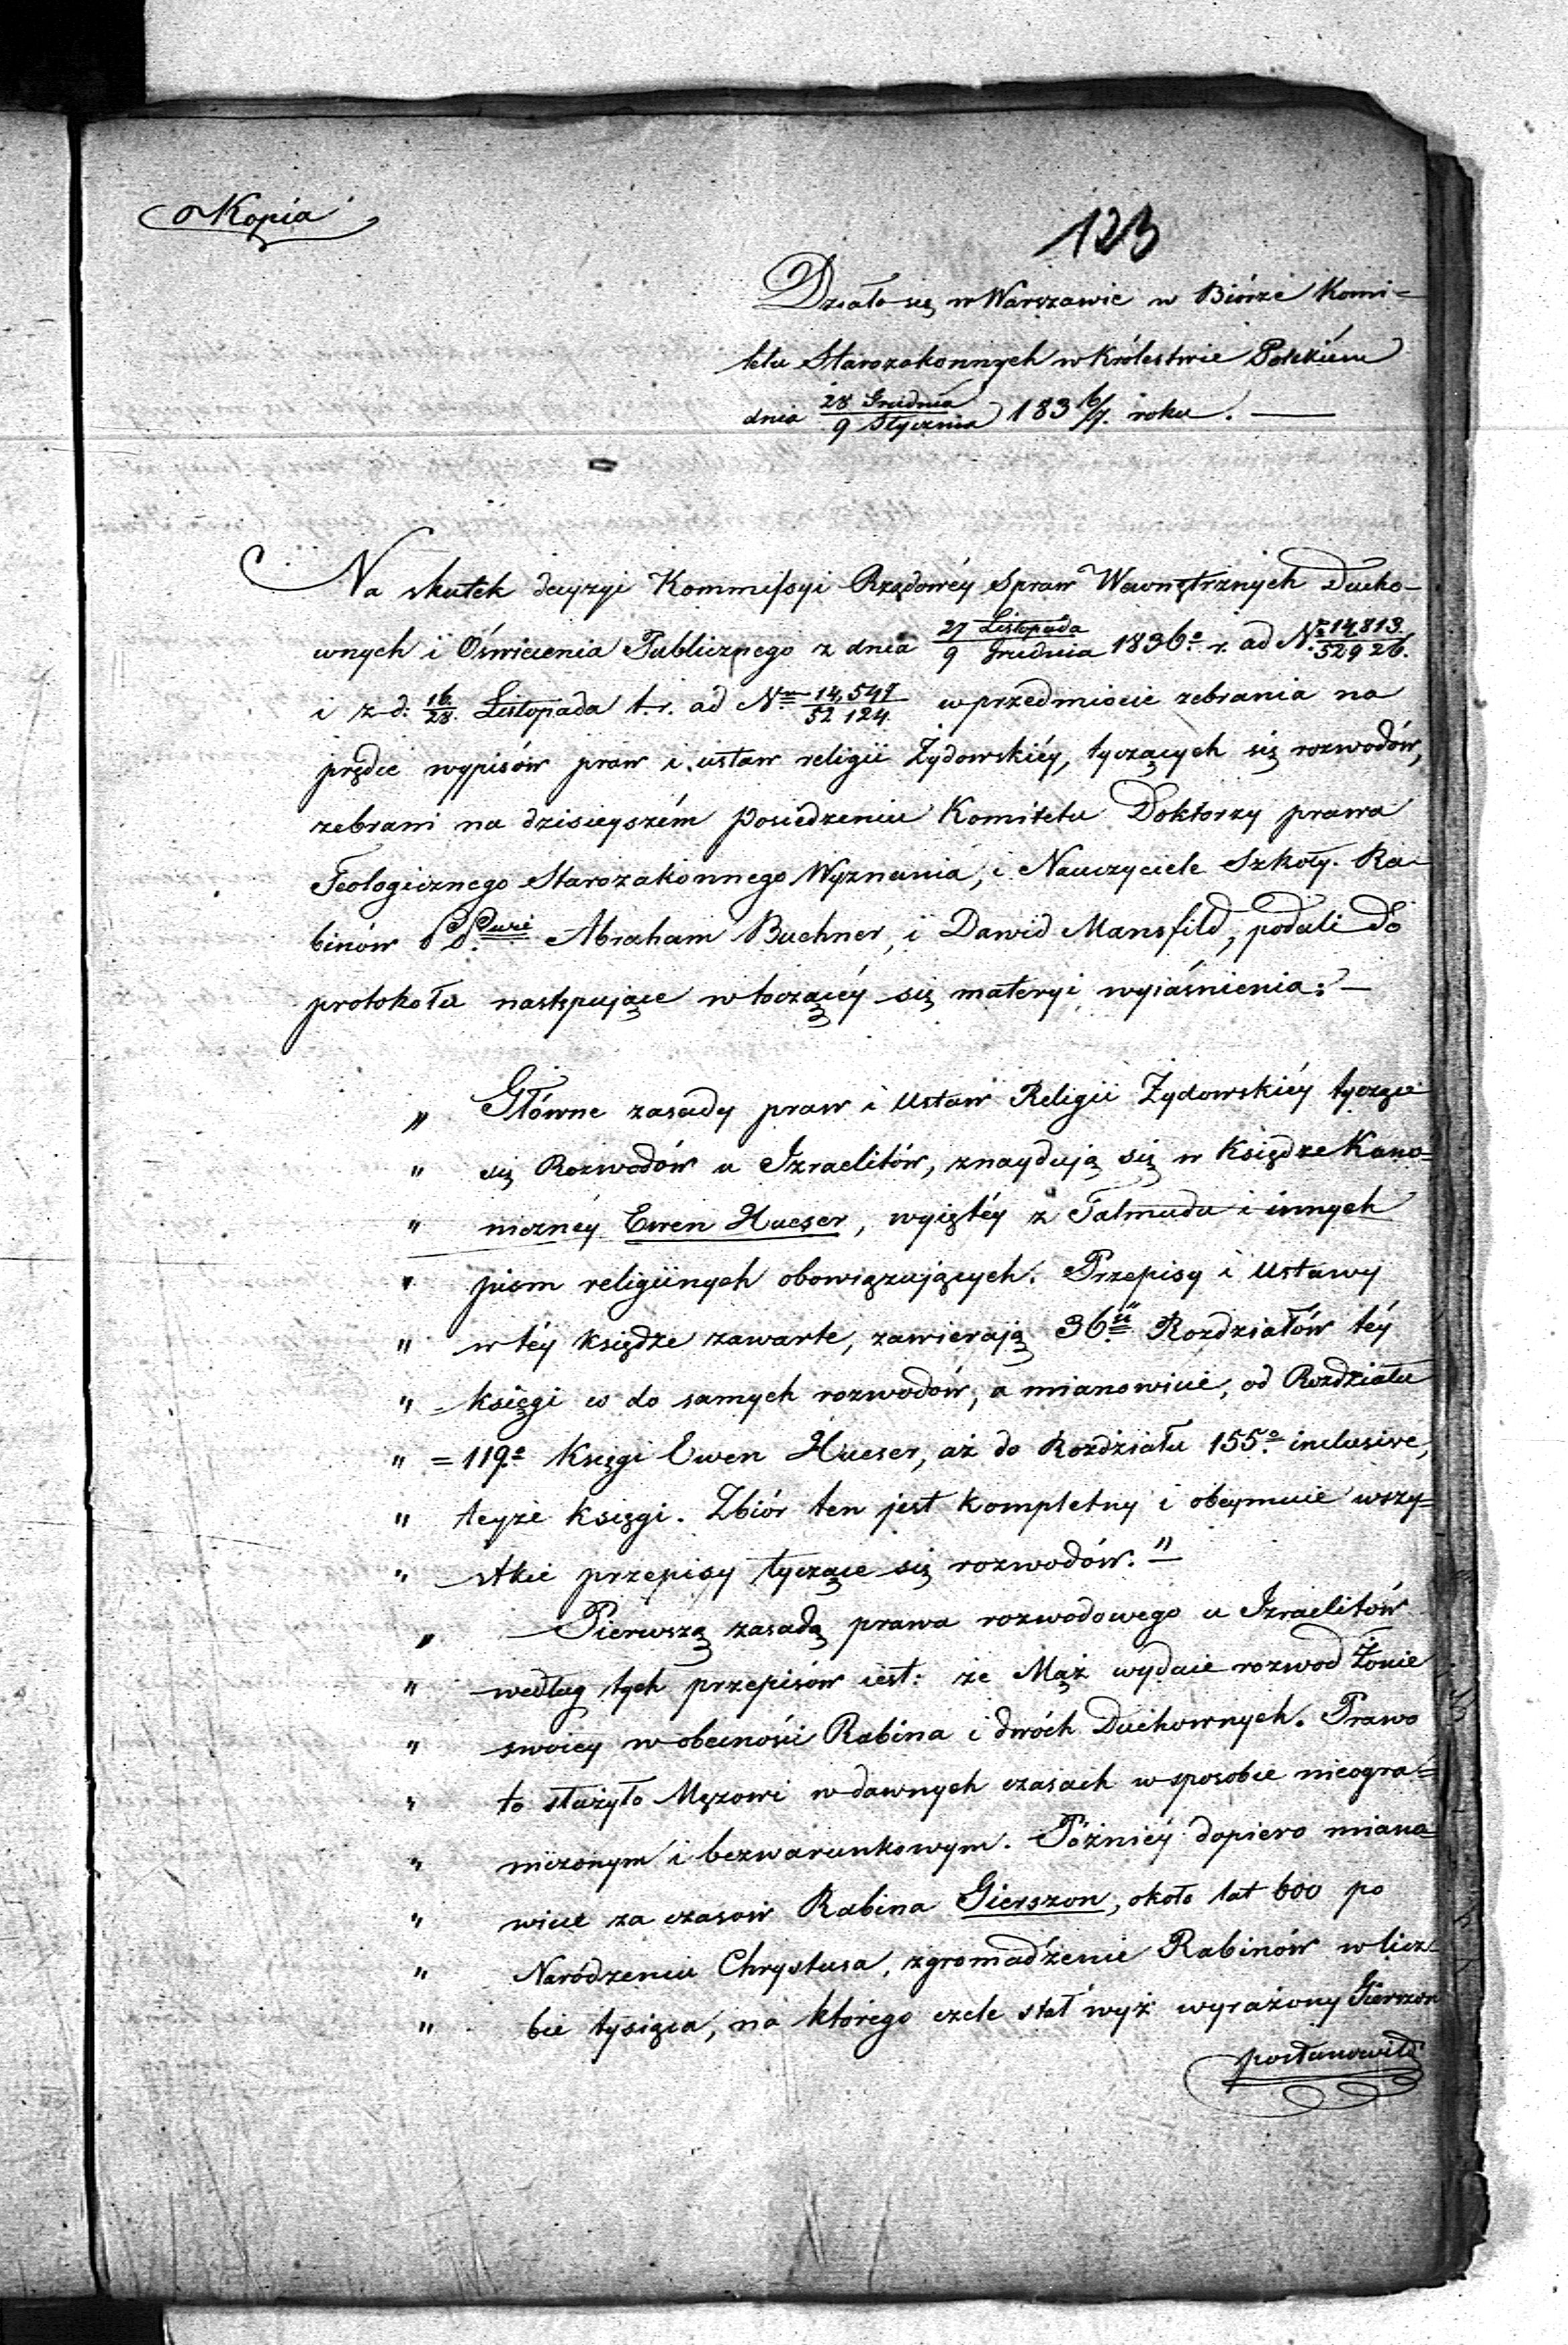 Kopia
123
Działo się w Warszawie w Biórze Komi=
tetu Starozakonnych w Królestwie Polskiém
dnia 28 Grudnia / 9 Stycznia 1836/7. roku. —
Na skutek decyzyi Kommissyi Rządowéy Spraw Wewnętrznych Ducho-
wnych i Oświecenia Publicznego z dnia 27 Listopada / 9 Grudnia 1836º r. ad Nº 14,813 / 52926.
i z d: 16/28. Listopada t. r. ad Nrum 14,547 / 52 124. w przedmiocie zebrania na
prędce wypisów praw i ustaw religii Żydowskiéy, tyczących się rozwodów,
zebrani na dzisieyszém posiedzeniu Komitetu Doktorzy prawa
Teologicznego Starozakonnego Wyznania, i Nauczyciele Szkoły Ra-
binów Abraham Buchner, i Dawid Mansfild, podali do
protokołu następujące w toczącéy się materyi wyiaśnienia: —
„ Główne zasady praw i Ustaw Religii Żydowskiéy tyczące
" się Rozwodów u Izraelitów, znaydują się w Księdze Kano=
" niczney Ewen Haeser, wyiętéy z Talmudu i innych
" pism religiinych obowiązujących. Przepisy i Ustawy
" w téy księdze zawarte, zawierają 36 Rozdziałów téy
" księgi co do samych rozwodów, a mianowicie, od Rozdziału
" = 119.º Księgi Ewen Haeser, aż do Rozdziału 155.º inclusive,
" teyże księgi. Zbiór ten jest kompletny i obeymuie wszy=
" stkie przepisy tyczące się rozwodów. " —
„ Pierwszą zasadą prawa rozwodowego u Izraelitów
" według tych przepisów iest: że Mąż wydaie rozwod Żonie
" swoiey w obecności Rabina i dwóch Duchownych. Prawo
" to służyło Mężowi w dawnych czasach w sposobie nieogra=
" niczonym i bezwarunkowym. Późniéy dopiero miano=
" wicie za czasów Rabina Gierszon, około lat 600 po
" Narodzeniu Chrystusa, zgromadzenie Rabinów w licz=
" bie tysiąca, na którego czele stał wyż wyrażony Gierszon
postanowiło